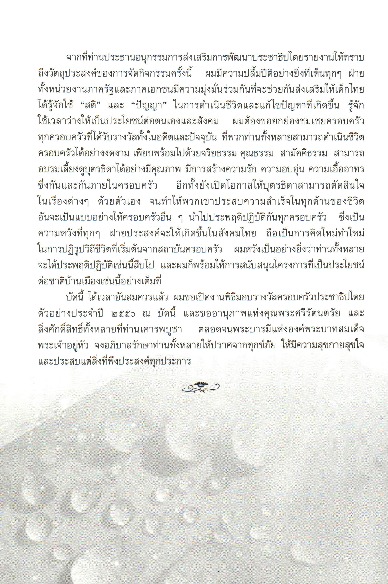 จากที่ท่านประธานอนุกรรมการส่งเสริมการพัฒนาประชาธิปไตยรายงานให้ทราบ
ถึงวัตถุประสงค์ของการจัดกิจกรรมครั้งนี้ ผมมีความปลื้มปีติอย่างยิ่งที่เห็นทุกๆ ฝ่าย
ทั้งหน่วยงานภาครัฐและภาคเอกชนมีความมุ่งมั่นร่วมกันที่จะช่วยกันส่งเสริมให้เด็กไทย
ได้รู้จักใช้ “สติ” และ “ปัญญา” ในการดำเนินชีวิตและแก้ไขปัญหาที่เกิดขึ้น รู้จัก
ใช้เวลาว่างให้เป็นประโยชน์ต่อตนเองและสังคม ผมต้องขอยกย่องชมเชยครอบครัว
ทุกครอบครัวที่ได้รับรางวัลทั้งในอดีตและปัจจุบัน ที่พวกท่านทั้งหลายสามารถดำเนินชีวิต
ครอบครัวได้อย่างงดงาม เพียบพร้อมไปด้วยจริยธรรม คุณธรรม สามัคคีธรรม สามารถ
อบรมเลี้ยงดูบุตรธิดาได้อย่างมีคุณภาพ มีการสร้างความรัก ความอบอุ่น ความเอื้ออาทร
ซึ่งกันและกันภายในครอบครัว อีกทั้งยังเปิดโอกาสให้บุตรธิดาสามารถตัดสินใจ
ในเรื่องต่างๆ ด้วยตัวตัวเอง จนทำให้พวกเขาประสบความสำเร็จในทุกด้านของชีวิต
อันจะเป็นแบบอย่างให้ครอบครัวอื่น ๆ นำไปประพฤติปฏิบัติกันทุกครอบครัว ซึ่งเป็น
ความหวังที่ทุกๆ ฝ่ายประสงค์จะให้เกิดขึ้นในสังคมไทย ถือเป็นการคิดใหม่ทำใหม่
ในการปฏิรูปวิถีชีวิตที่เริ่มต้นจากสถาบันครอบครัว ผมหวังเป็นอย่างยิ่งว่าท่านทั้งหลาย
จะได้ประพฤติปฏิบัติเช่นนี้สืบไป และผมก็พร้อมให้การสนับสนุนโครงการที่เป็นประโยชน์
ต่อชาติบ้านเมืองเช่นนี้อย่างเต็มที่
บัดนี้ ได้เวลาอันสมควรแล้ว ผมขอเปิดงานพิธีมอบรางวัลครอบครัวประชาธิปไตย
ตัวอย่างประจำปี ๒๕๔๖ ณ บัดนี้ และขออานุภาพแห่งคุณพระศรีรัตนตรัย และ
สิ่งศักดิ์สิทธิ์ทั้งหลายที่ท่านเคารพบูชา ตลอดจนพระบารมีแห่งองค์พระบาทสมเด็จ
พระเจ้าอยู่หัว จงอภิบาลรักษาท่านทั้งหลายให้ปราศจากทุกข์ภัย ให้มีความสุขกายสุขใจ
และประสบแต่สิ่งที่พึงประสงค์ทุกประการ